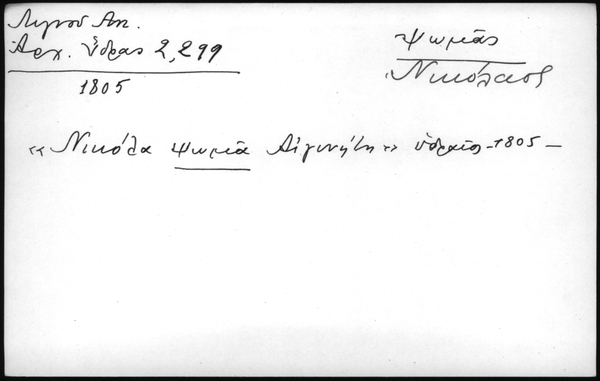 Λιγνού Αν.
Αρχ. Ύδρας 2,299
1805
Ψωμᾶς
Νικόλαος
«Νικόλα Ψωμᾶ Αἰγινήτη» ὑδραῖος -1805-